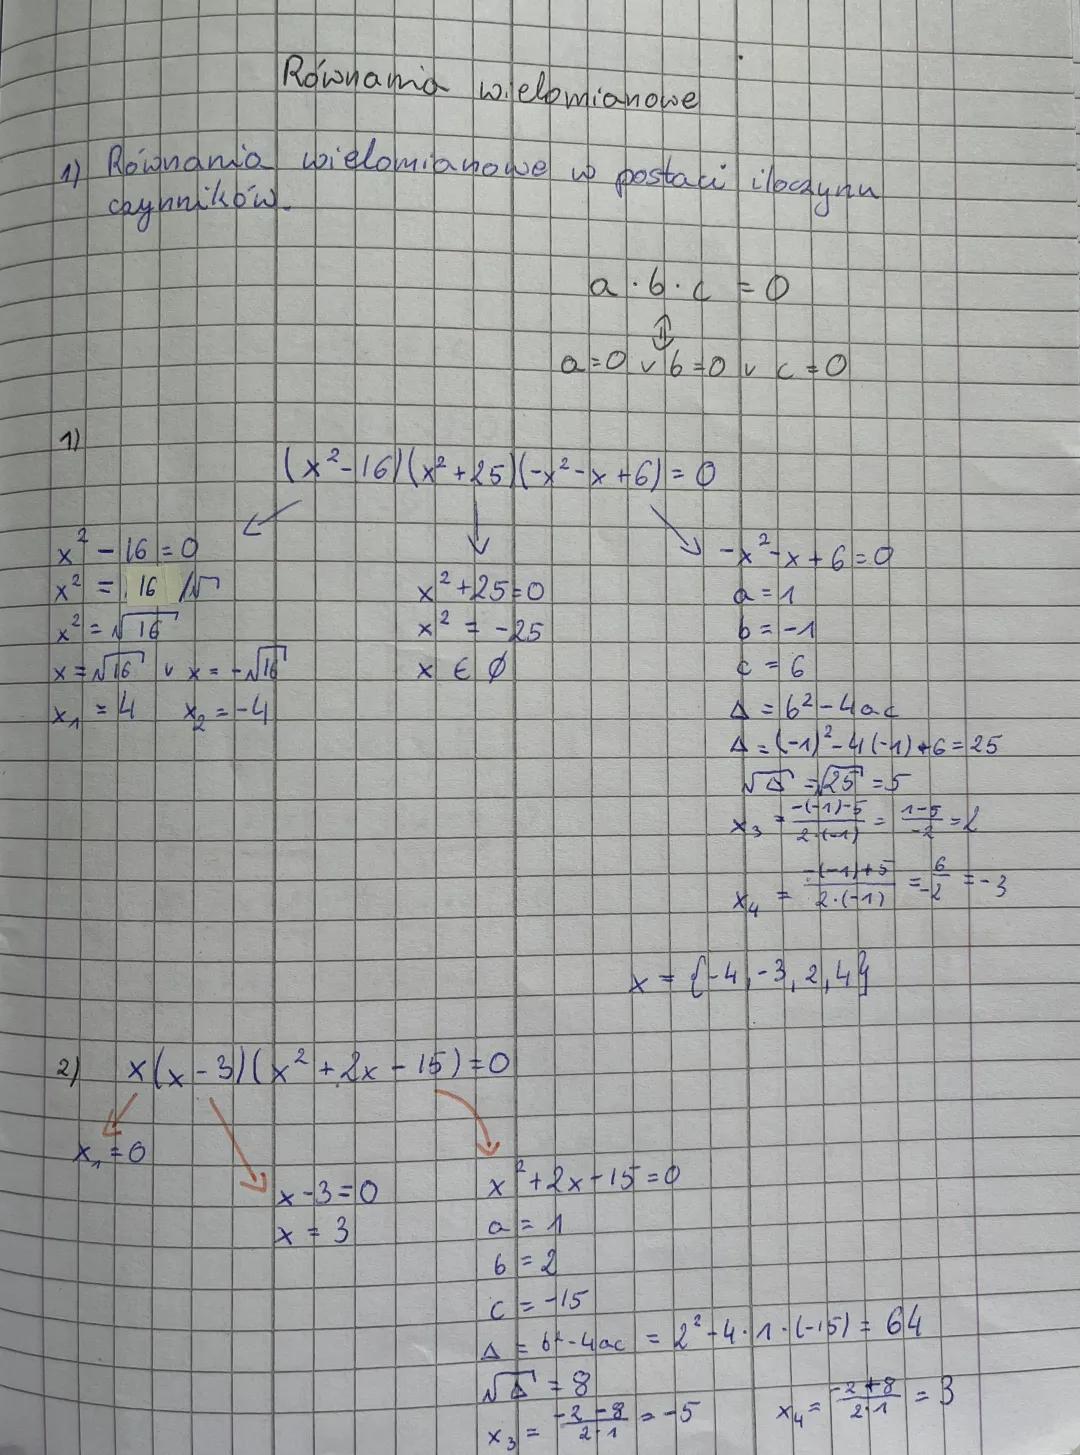 Równania wielomianowe
1) Równania wielomianowe w postaci iloczynu
czynników.
a · b · c = 0
⇕
a = 0 ∨ b = 0 ∨ c = 0
1)
(x² - 16)(x² + 25)(-x² - x + 6) = 0
x² - 16 = 0
x² = 16 /√
x² = √16
x = √16 ∨ x = -√16
x₁ = 4 x₂ = -4
x² + 25 = 0
x² = -25
x ∈ ∅
-x² - x + 6 = 0
a = 1
b = -1
c = 6
Δ = b² - 4ac
Δ = (-1)² - 4(-1) · 6 = 25
√Δ = √25 = 5
x₃ = -(-1)-5 / 2·(-1) = 1-5 / -2 = 2
x₄ = -(-1)+5 / 2·(-1) = 6 / -2 = -3
x = {-4, -3, 2, 4}
2) x(x - 3)(x² + 2x - 15) = 0
x₁ = 0
x - 3 = 0
x = 3
x² + 2x - 15 = 0
a = 1
b = 2
c = -15
Δ = b² - 4ac = 2² - 4 · 1 · (-15) = 64
√Δ = 8
x₃ = -2 - 8 / 2·1 = -5 x₄ = -2 + 8 / 2·1 = 3